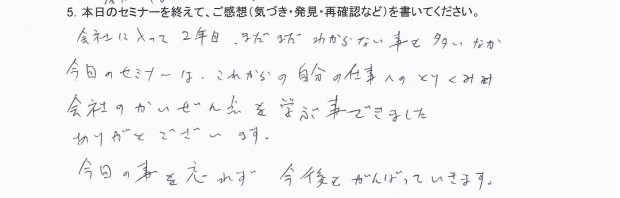 5. 本日のセミナーを終えて、ご感想(気づき・発見・再確認など)を書いてください。
会社に入って2年目、まだまだわからない事も多いなか
今日のセミナーは、これからの自分の仕事へのとりくみ
会社のかいぜん点を学ぶ事できました
ありがとございます。
今日の事を忘れず 今後もがんばっていきます。